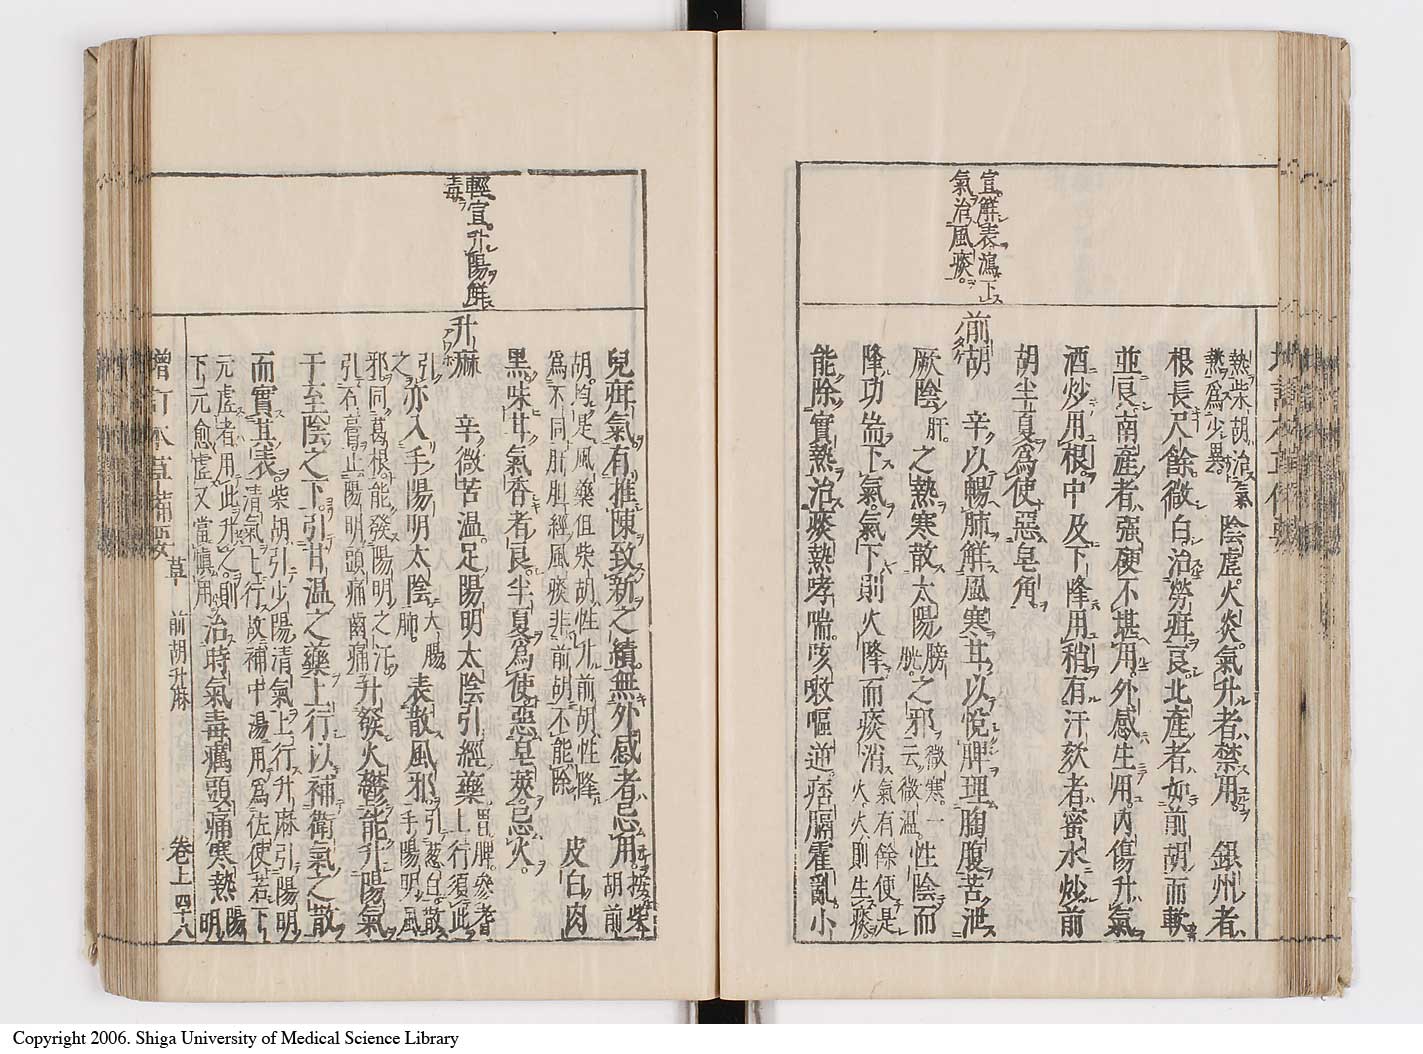 宜解表瀉下
氣治風痰
熱柴胡治氣
熱爲少異
陰虛火炎氣升者禁用 銀州者
根長尺餘微白治勞疳良北產者如前胡而軟
並良南產者强硬不堪用外感生用內傷升氣
酒炒用根中及下降用稍有汗欬者蜜水炒前
胡半夏爲使惡皂角
前胡 辛以暢肺解風寒甘以悅脾理胸腹苦泄
厥陰肝之熱寒散太陽膀胱之邪微寒一云微溫性陰而
降功耑下氣氣下則火降而痰消氣有餘便是火火則生痰
能除實熱治痰熱哮喘咳嗽嘔逆痞膈霍亂小
輕宣升陽解
毒
兒疳氣有推陳致新之績無外感者忌用按柴胡前
胡均是風藥但柴胡性升前胡性降
爲不同肝胆經風痰非前胡不能除
皮白肉
黑味甘氣香者良半夏爲使惡皂莢忌火
升麻 辛微苦溫足陽明太陰引經藥胃脾參耆上行須此
引之亦入手陽明太陰大腸肺表散風邪引葱白散手陽明風
邪同葛根能發陽明之汗
引石膏止陽明頭痛齒痛
升發火鬱能升陽氣
于至陰之下引甘溫之藥上行以補衛氣之散
而實其表柴胡引少陽清氣上行升麻引陽明
清氣上行故補中湯用爲佐使若下
元虛者用此升之則
下元愈虛又當愼用
治時氣毒癘頭痛寒熱陽明
增訂本草備要 草 前胡升麻 卷上 四十八
Copyright 2006. Shiga University of Medical Science Library